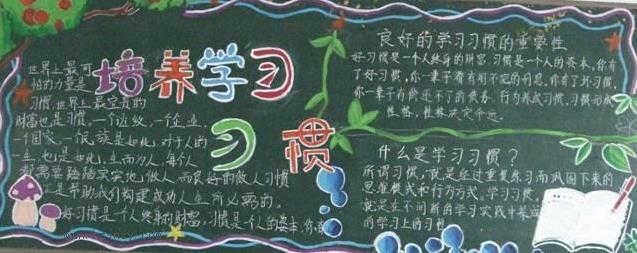 培养学习
习惯
世界上最可
怕的力量是
习惯,世界上最宝贵的
财富也是习惯,一个延续,一个企业,
一个国家,一个民族是如此,对于人的
一生,也是如此,生而为人,每个人
都需要踏踏实实地做人,而良好的做人习惯
正是帮助我们构建成功人生所必需的。
好习惯是一个人终身的财富,习惯是一个人的资本,你有
良好的学习习惯的重要性
好习惯是一个人终身的财富,习惯是一个人的资本,你有
了好习惯,你一辈子都有用不完的利息,你有了坏习惯,
你一辈子有偿还不了的债务。行为养成习惯,习惯形成
性格,性格决定命运。
什么是学习习惯?
所谓习惯,就是经过重复练习而巩固下来的
思维模式和行为方式。学习习惯,
就是在不间断的学习实践中养成
的学习上的习惯